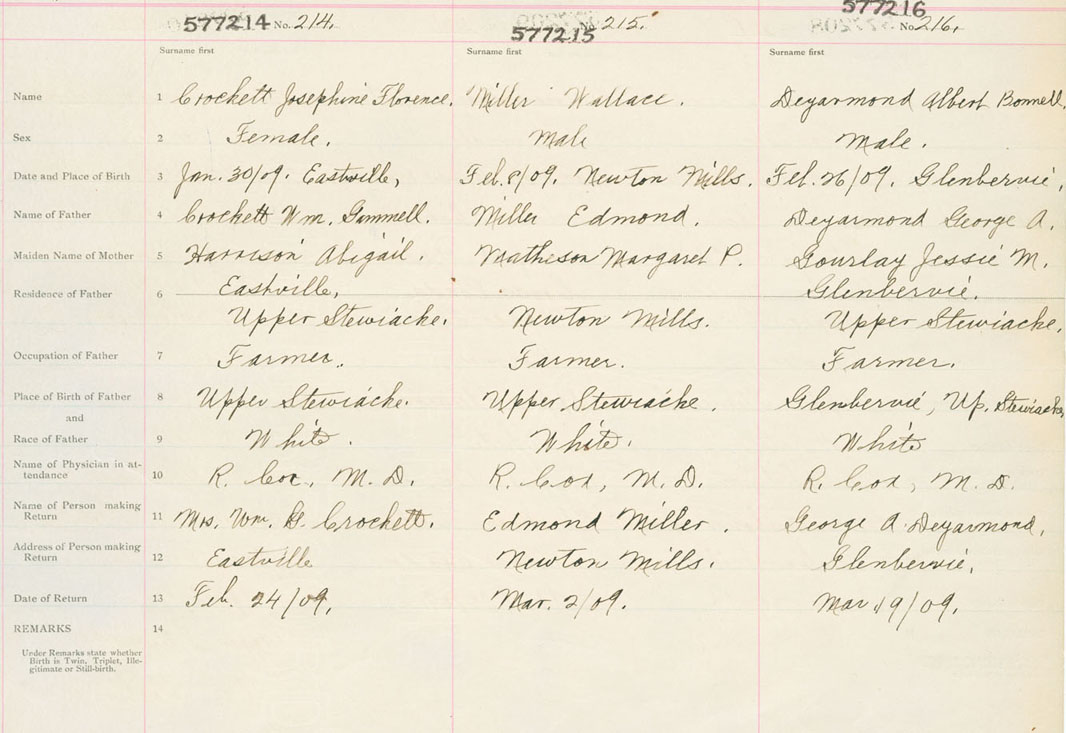 577214 No. 214.
577215 No. 215.
577216 No. 216.
Surname first Surname first Surname first
Name 1 Crockett Josephine Florence. Miller Wallace. Deyarmond Albert Bonnell.
Sex 2 Female. Male Male.
Date and Place of Birth 3 Jan. 30/09. Eastville, Feb. 8/09. Newton Mills. Feb. 26/09. Glenbervie,
Name of Father 4 Crockett Wm. Gammell. Miller Edmond. Deyarmond George A.
Maiden Name of Mother 5 Harrison Abigail. Matheson Margaret P. Gourlay Jessie M.
Residence of Father 6 Eastville, Glenbervie.
Upper Stewiacke. Newton Mills. Upper Stewiacke.
Occupation of Father 7 Farmer. Farmer. Farmer.
Place of Birth of Father 8 Upper Stewiacke. Upper Stewiacke. Glenbervie, Up. Stewiacke
and
Race of Father 9 White. White. White
Name of Physician in at-
tendance 10 R. Cox, M. D. R. Cox, M. D. R. Cox, M. D.
Name of Person making
Return 11 Mrs. Wm. G. Crockett. Edmond Miller. George A. Deyarmond,
Address of Person making
Return 12 Eastville Newton Mills. Glenbervie,
Date of Return 13 Feb. 24/09, Mar. 2/09. Mar 19/09.
REMARKS 14
Under Remarks state whether
Birth is Twin, Triplet, Ille-
gitimate or Still-birth.